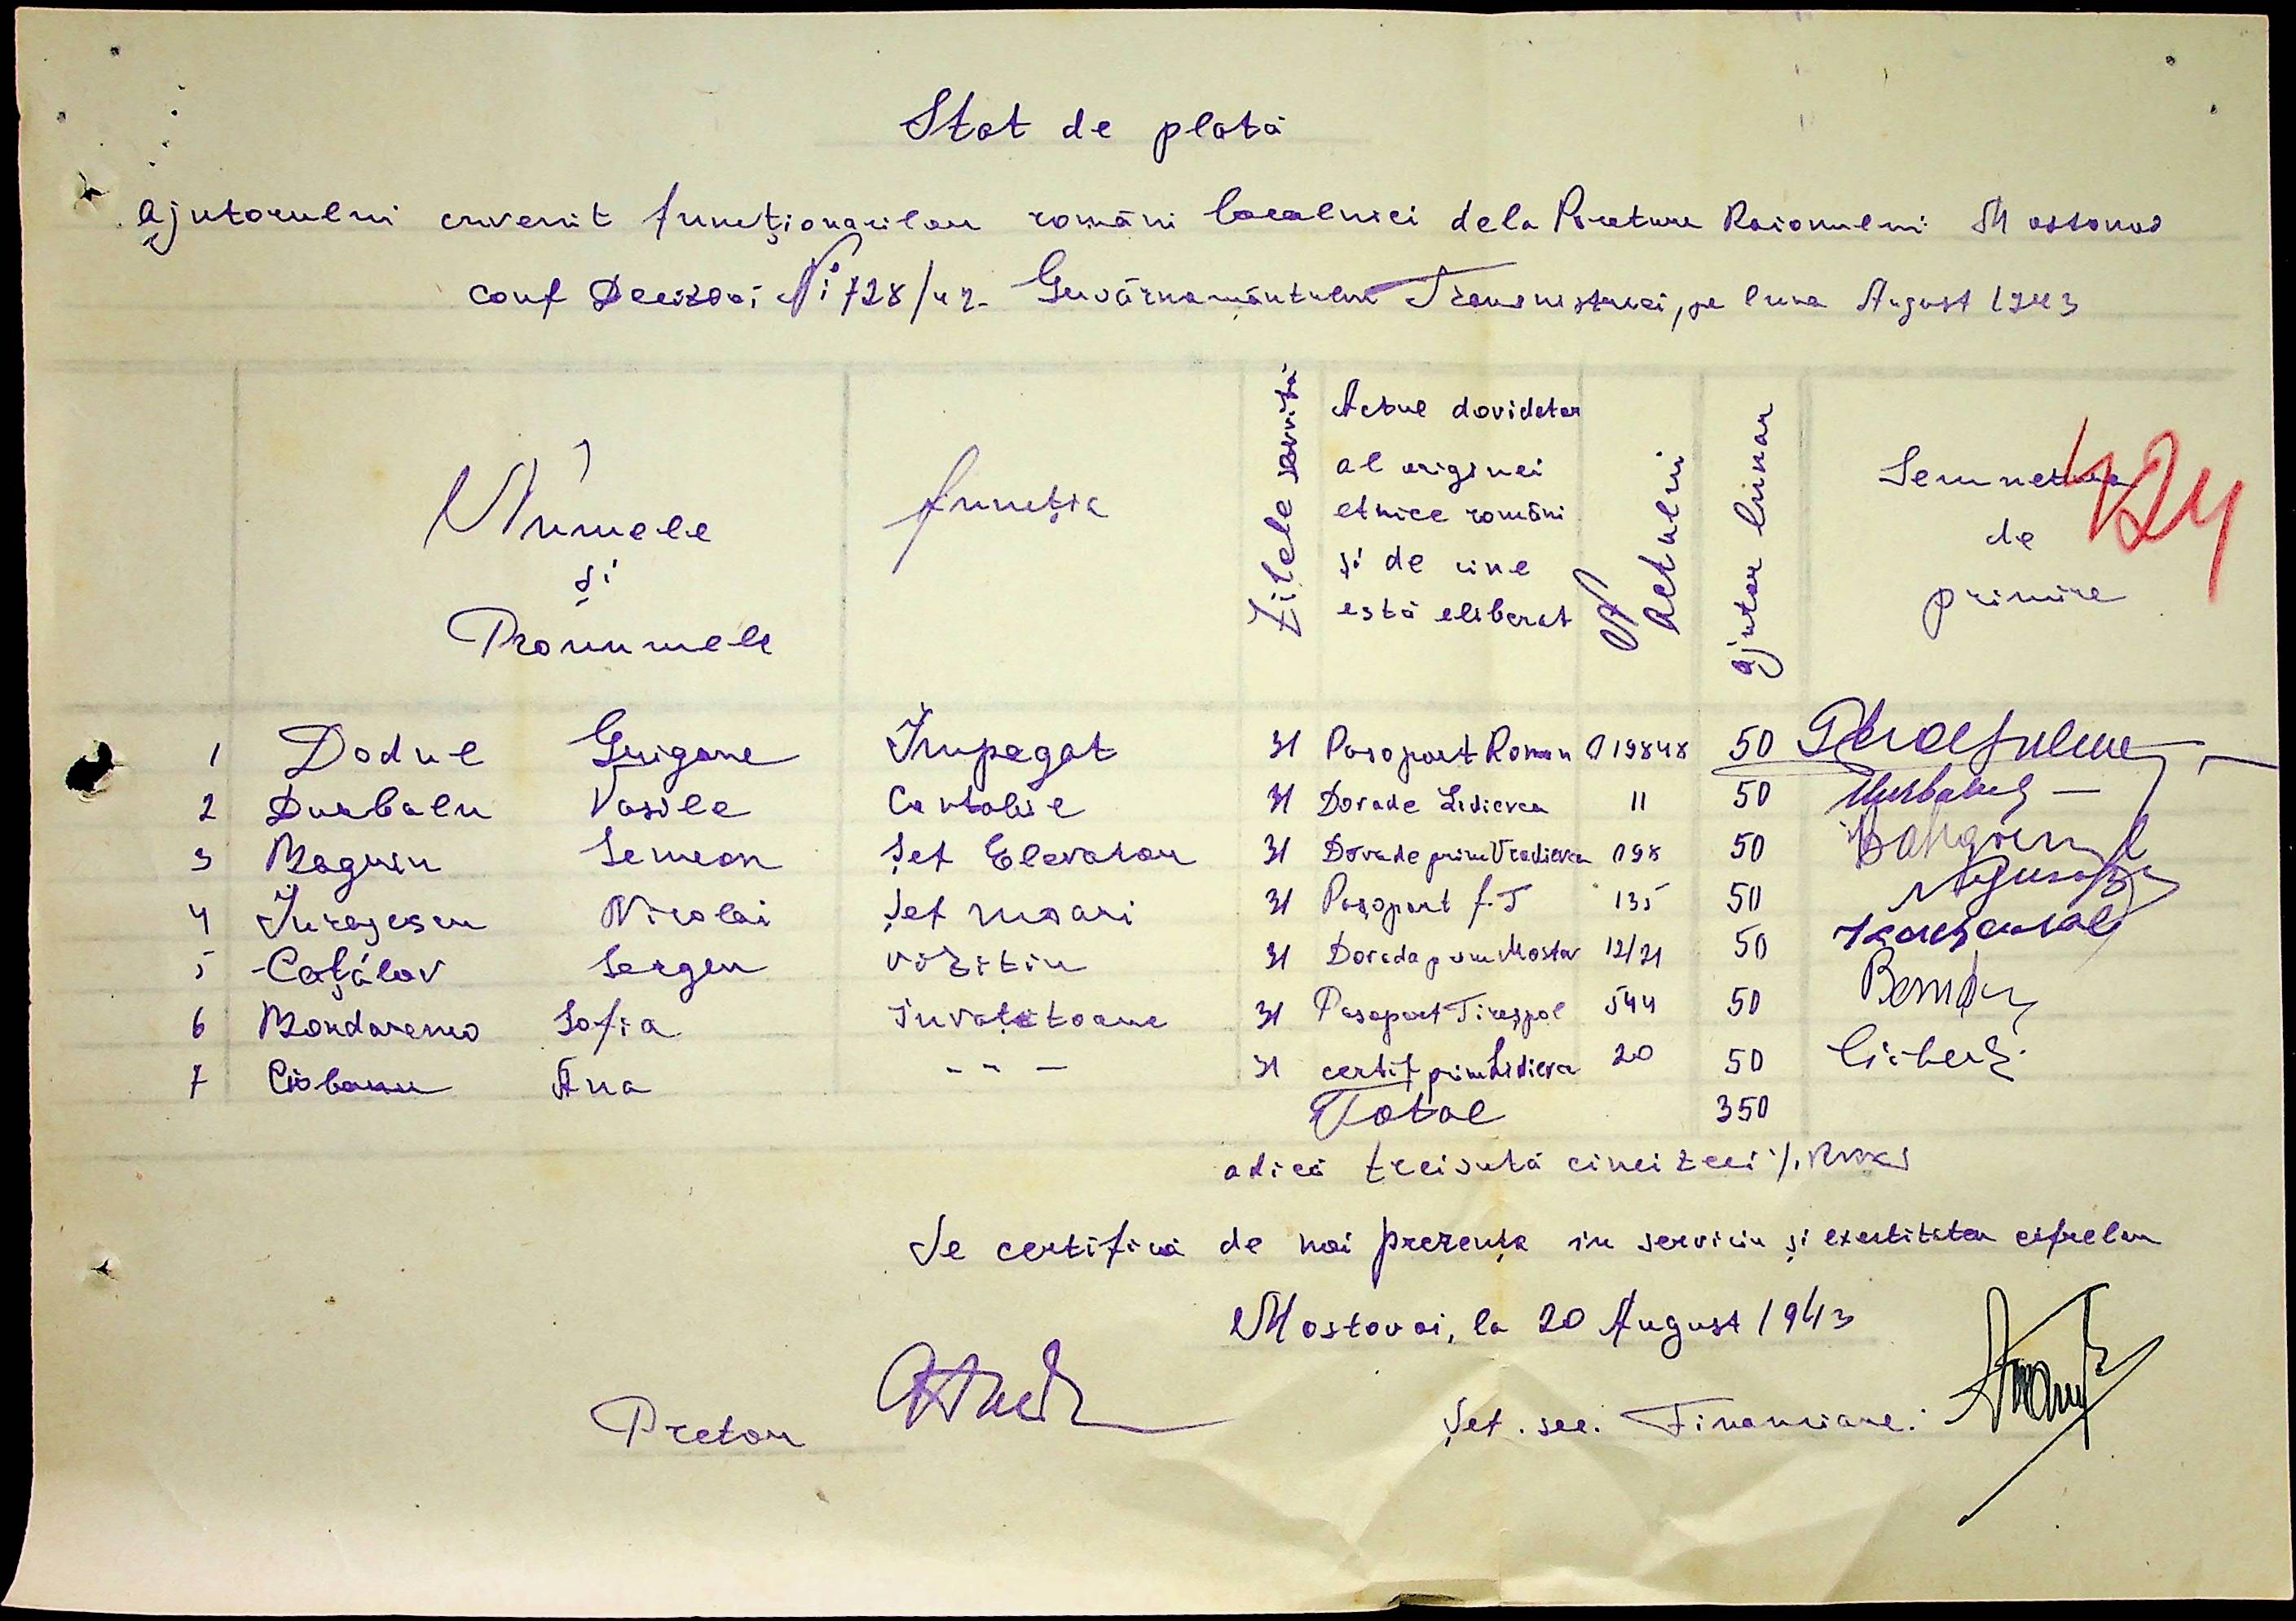 Stat de plată
ajutorului cuvenit funcționarilor români localnici dela Pretura Raionului Mostovoi
conf Deciziei Nr 728/42 Guvărnamăntului Transnistriei, pe luna August 1943
Numele
și
Pronumele
funcția
Zilele servite
Actul doveditor
al originei
etnice români
și de cine
està eliberat
N actului
ajutor lunar
Semnetura
de
primire
424
1 Dodul Grigore Împegat 31 Pasoport Roman 019848 50
2 Durbalu Vasile Contabil 31 Dovade Lidievca 11 50
3 Bagrin Semeon Șef Elevator 31 Dovade prim Vradievca 098 50
4 Nicolai Șef morari 31 Pașoport f. T 135 50
5 Cațàlov Sergeu vizitiu 31 Doveda prim Mostov 12/21 50
6 Bondarenco Sofia Învatatoare 31 Pasaport Tirașpol 544 50
7 Ciobanu Ana - " - 31 certif prim Lidieva 20 50
Total 350
adică treisută cincizeci
Se certifică de noi prezența in serviciu și exactitatea cifrelor
Mostovoi, la 20 August 1943
Pretor
Șef. sec. Financiare.